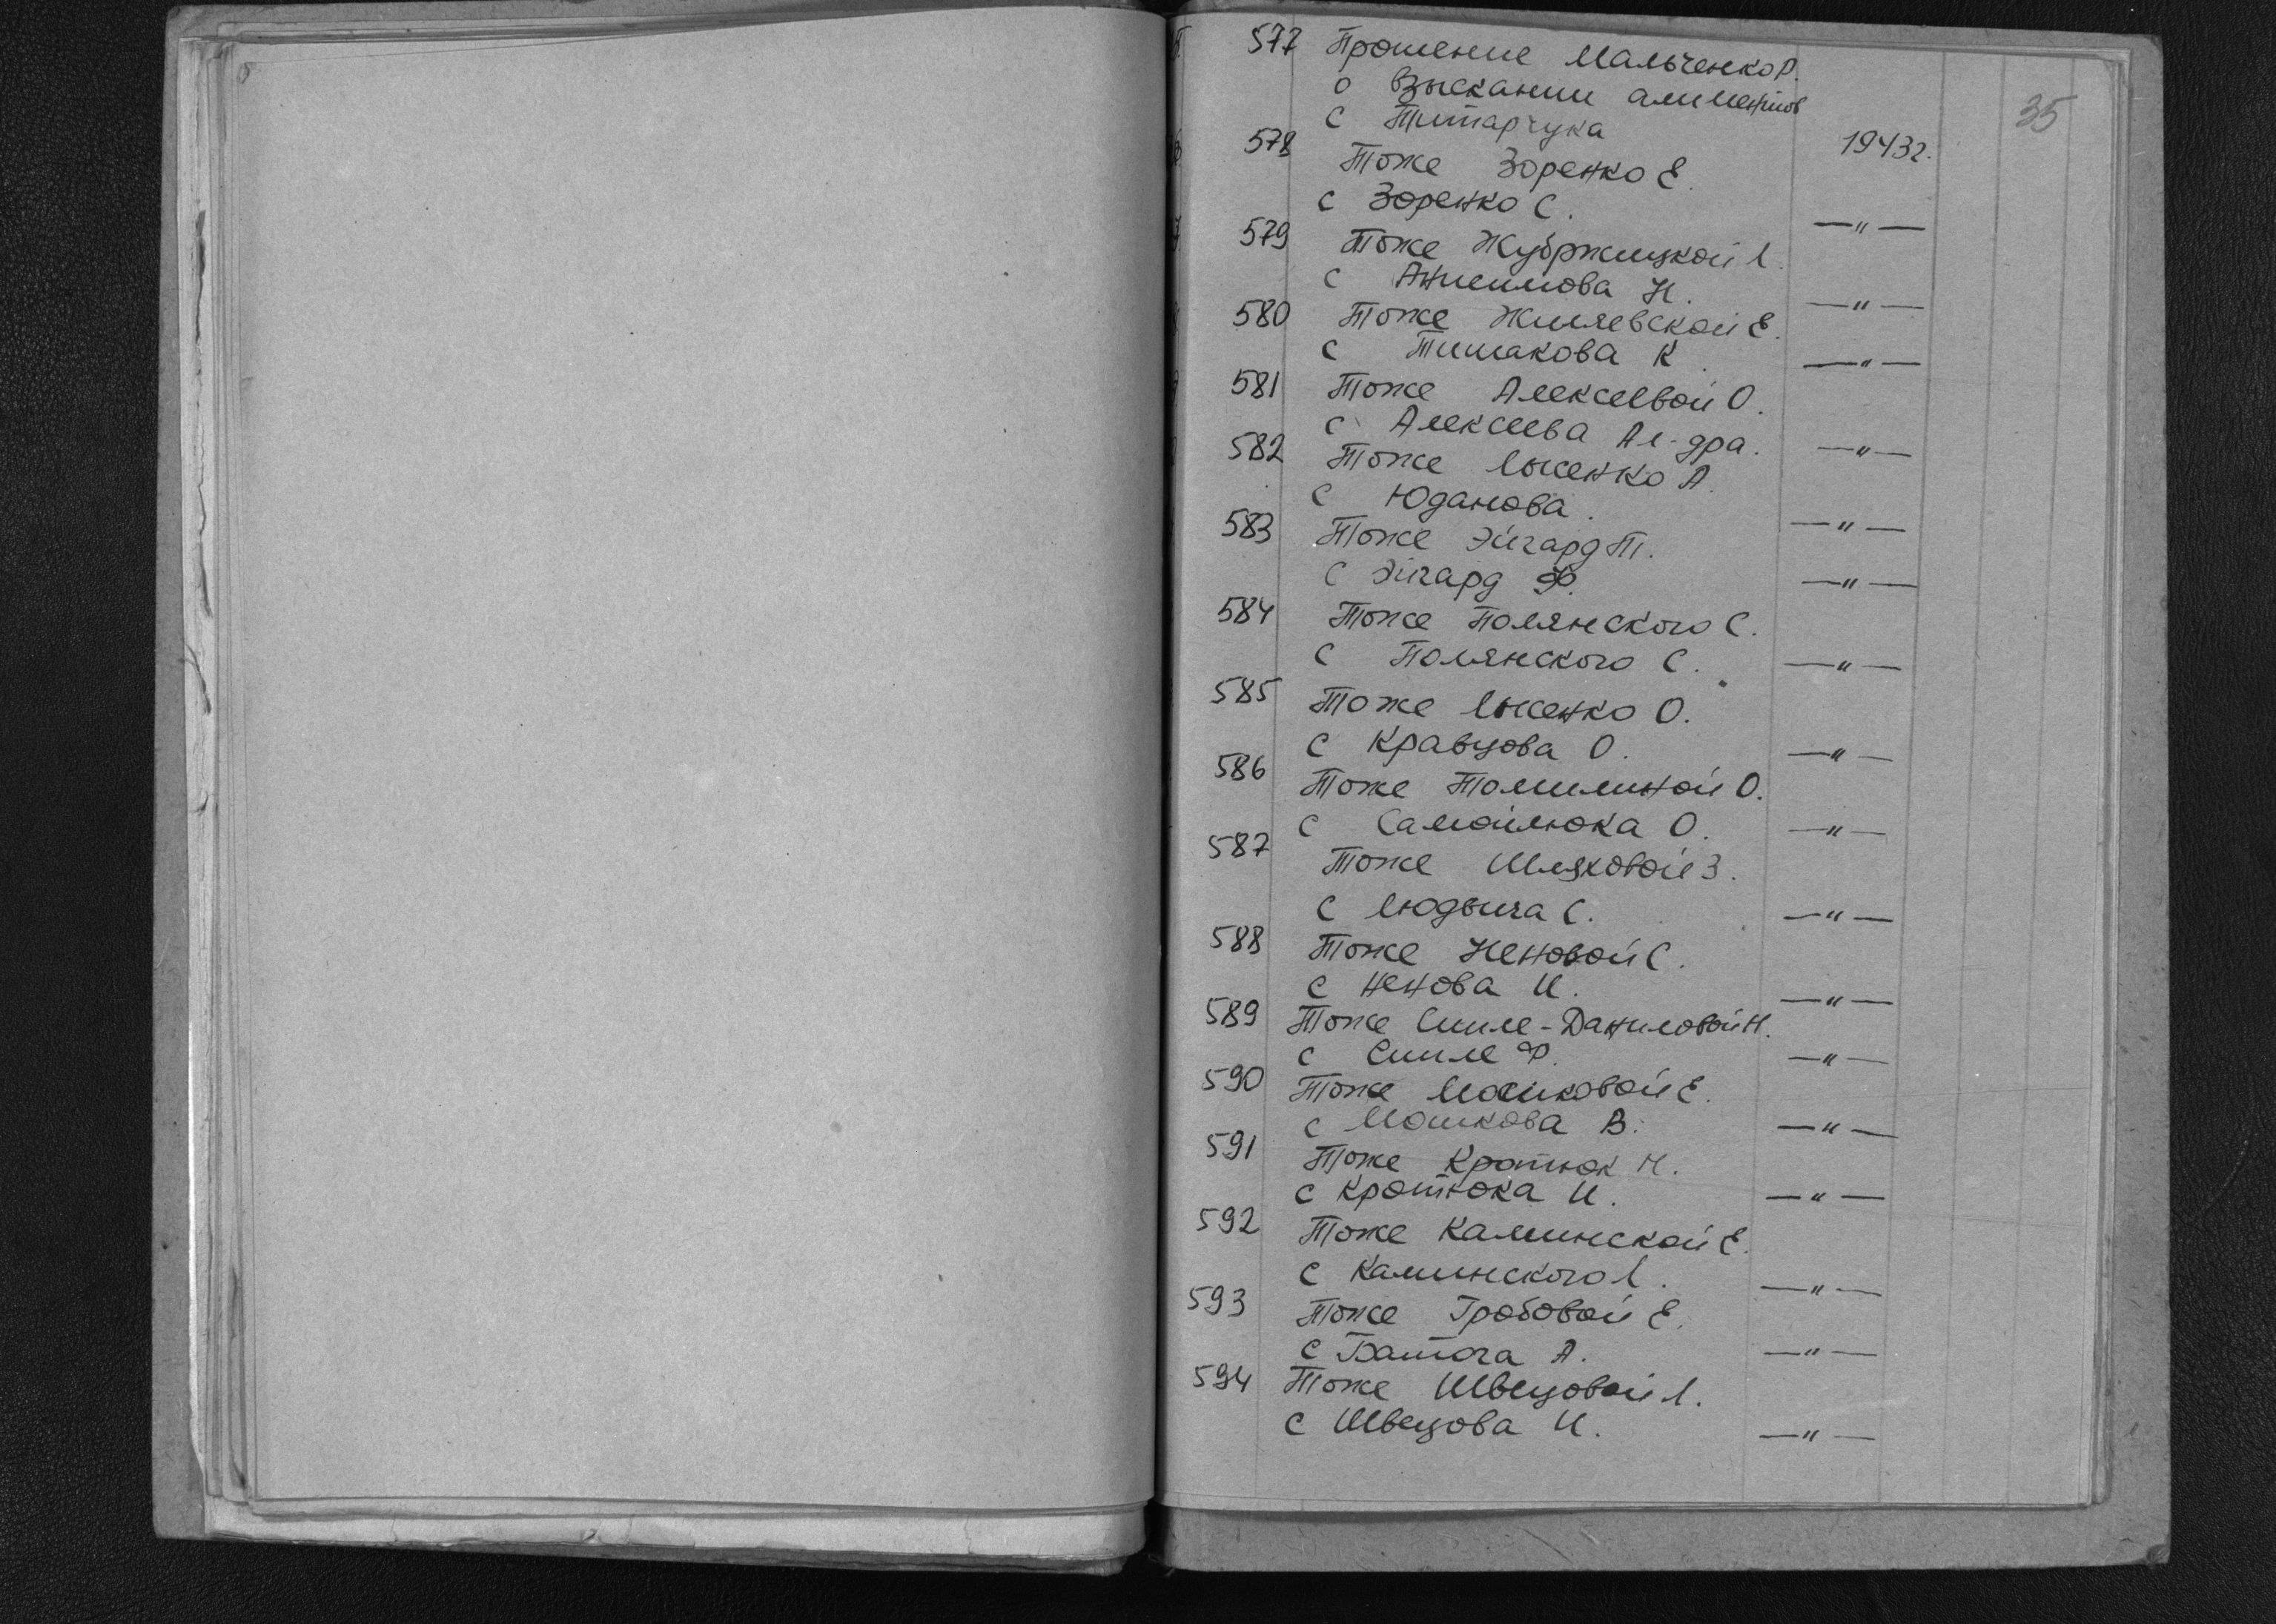 35
577 Прошение Мальченко Р.
о взыскании алиментов
с Титарчука 1943г.
578 Тоже Зоренко Е.
с Зоренко С. —"—
579 Тоже Жубржицкой Л.
с Анисимова Н. —"—
580 Тоже Жиляевской Е.
с Тимакова К. —"—
581 Тоже Алексеевой О.
с Алексеева Ал-дра. —"—
582 Тоже Лысенко А.
с Юданова. —"—
583 Тоже Эйгард Т.
с Эйгард Ф. —"—
584 Тоже Полянского С.
с Полянского С. —"—
585 Тоже Лысенко О.
с Кравцова О. —"—
586 Тоже Томилиной О.
с Самойлюка О. —"—
587 Тоже Шляховой З.
с Людвига С. —"—
588 Тоже Неновой С.
с Ненова И. —"—
589 Тоже Сииле-Даниловой Н.
с Сииле Ф. —"—
590 Тоже Мошковой Е.
с Мошкова В. —"—
591 Тоже Кротюк М.
с Кротюка И. —"—
592 Тоже Калинской Е.
с Калинского Л. —"—
593 Тоже Гробовой Е.
с Батога А. —"—
594 Тоже Швецовой Л.
с Швецова И. —"—